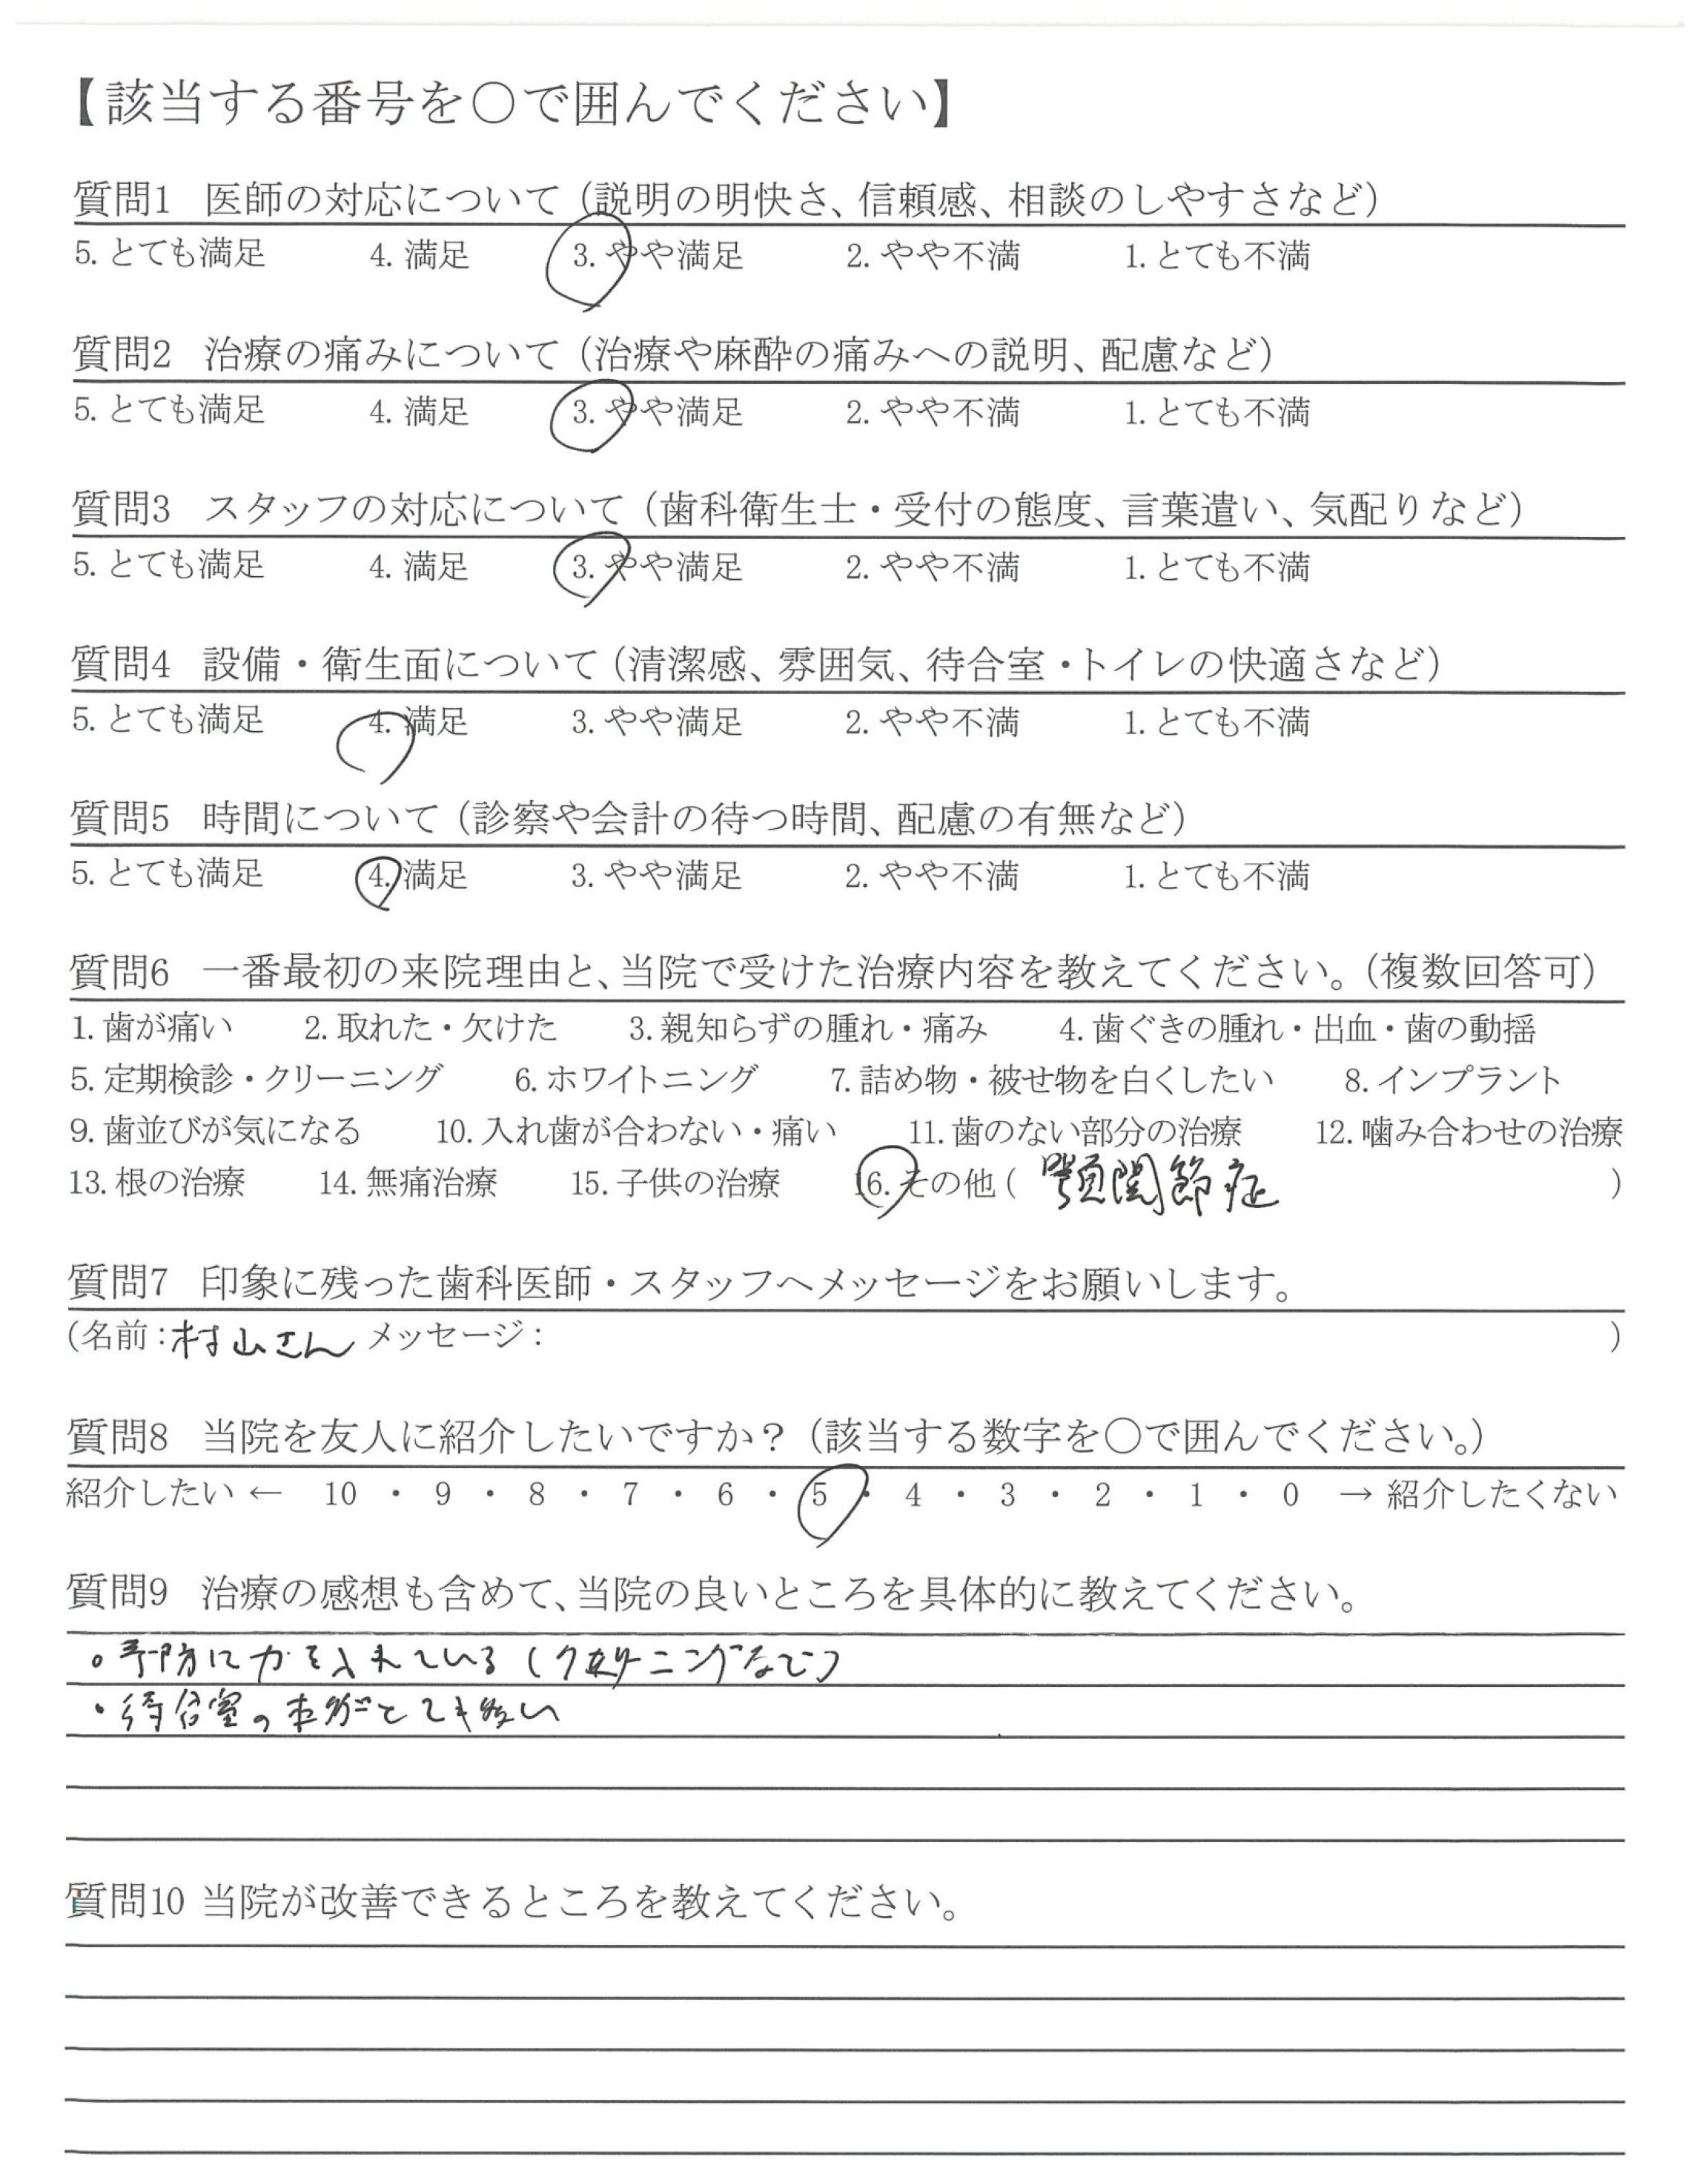 【該当する番号を○で囲んでください】
質問1 医師の対応について（説明の明快さ、信頼感、相談のしやすさなど）
5. とても満足 4. 満足 3. やや満足 2. やや不満 1. とても不満
質問2 治療の痛みについて（治療や麻酔の痛みへの説明、配慮など）
5. とても満足 4. 満足 3. やや満足 2. やや不満 1. とても不満
質問3 スタッフの対応について（歯科衛生士・受付の態度、言葉遣い、気配りなど）
5. とても満足 4. 満足 3. やや満足 2. やや不満 1. とても不満
質問4 設備・衛生面について（清潔感、雰囲気、待合室・トイレの快適さなど）
5. とても満足 4. 満足 3. やや満足 2. やや不満 1. とても不満
質問5 時間について（診察や会計の待つ時間、配慮の有無など）
5. とても満足 4. 満足 3. やや満足 2. やや不満 1. とても不満
質問6 一番最初の来院理由と、当院で受けた治療内容を教えてください。（複数回答可）
1. 歯が痛い 2. 取れた・欠けた 3. 親知らずの腫れ・痛み 4. 歯ぐきの腫れ・出血・歯の動揺
5. 定期検診・クリーニング 6. ホワイトニング 7. 詰め物・被せ物を白くしたい 8. インプラント
9. 歯並びが気になる 10. 入れ歯が合わない・痛い 11. 歯のない部分の治療 12. 噛み合わせの治療
13. 根の治療 14. 無痛治療 15. 子供の治療 16. その他（ 顎関節症 ）
質問7 印象に残った歯科医師・スタッフへメッセージをお願いします。
（名前：村山さん メッセージ： ）
質問8 当院を友人に紹介したいですか？（該当する数字を○で囲んでください。）
紹介したい ← 10 ・ 9 ・ 8 ・ 7 ・ 6 ・ 5 ・ 4 ・ 3 ・ 2 ・ 1 ・ 0 → 紹介したくない
質問9 治療の感想も含めて、当院の良いところを具体的に教えてください。
・予防に力を入れている（クリーニングなど）
・待合室の本がとても多い
質問10 当院が改善できるところを教えてください。